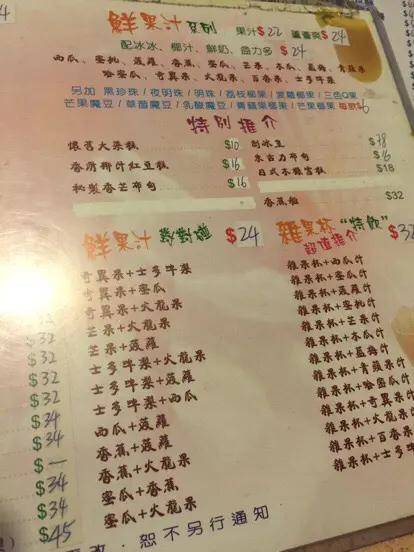 4
鮮果汁系列 果汁$22 蘆薈爽$24
配冰冰、椰汁、鮮奶、益力多 $24
西瓜、蜜桃、菠蘿、香蕉、蜜瓜、芒果、木瓜、藍莓、青蘋果
哈蜜瓜、奇異果、火龍果、百香果、士多啤梨
另加 黑珍珠/夜明珠/明珠/荔枝椰果/菠蘿椰果/三色Q果
芒果魔豆/草莓魔豆/乳酸魔豆/青蘋果椰果/芒果椰果 每款$6
特別推介
懷舊大菜糕 $10
香滑椰汁紅豆糕 $16
秘製香芒布甸 $16
刨冰豆 $38
朱古力布甸 $16
日式不倒雪糕 $18
香蕉船 $32
鮮果汁 對對碰 $24
奇異果+士多啤梨
奇異果+蜜瓜
奇異果+火龍果
芒果+火龍果
芒果+菠蘿
士多啤梨+火龍果
士多啤梨+菠蘿
士多啤梨+西瓜
西瓜+菠蘿
香蕉+菠蘿
香蕉+火龍果
蜜瓜+香蕉
蜜瓜+火龍果
雜果杯"特飲" $32
超值推介
雜果杯+西瓜汁
雜果杯+蜜瓜汁
雜果杯+菠蘿汁
雜果杯+蜜桃汁
雜果杯+芒果汁
雜果杯+木瓜汁
雜果杯+藍莓汁
雜果杯+青蘋果汁
雜果杯+哈密瓜汁
雜果杯+奇異果汁
雜果杯+火龍果
雜果杯+百香果
雜果杯+士多
$32
$32
$32
$32
$34
$34
$—
$34
$34
$45
恕不另行通知